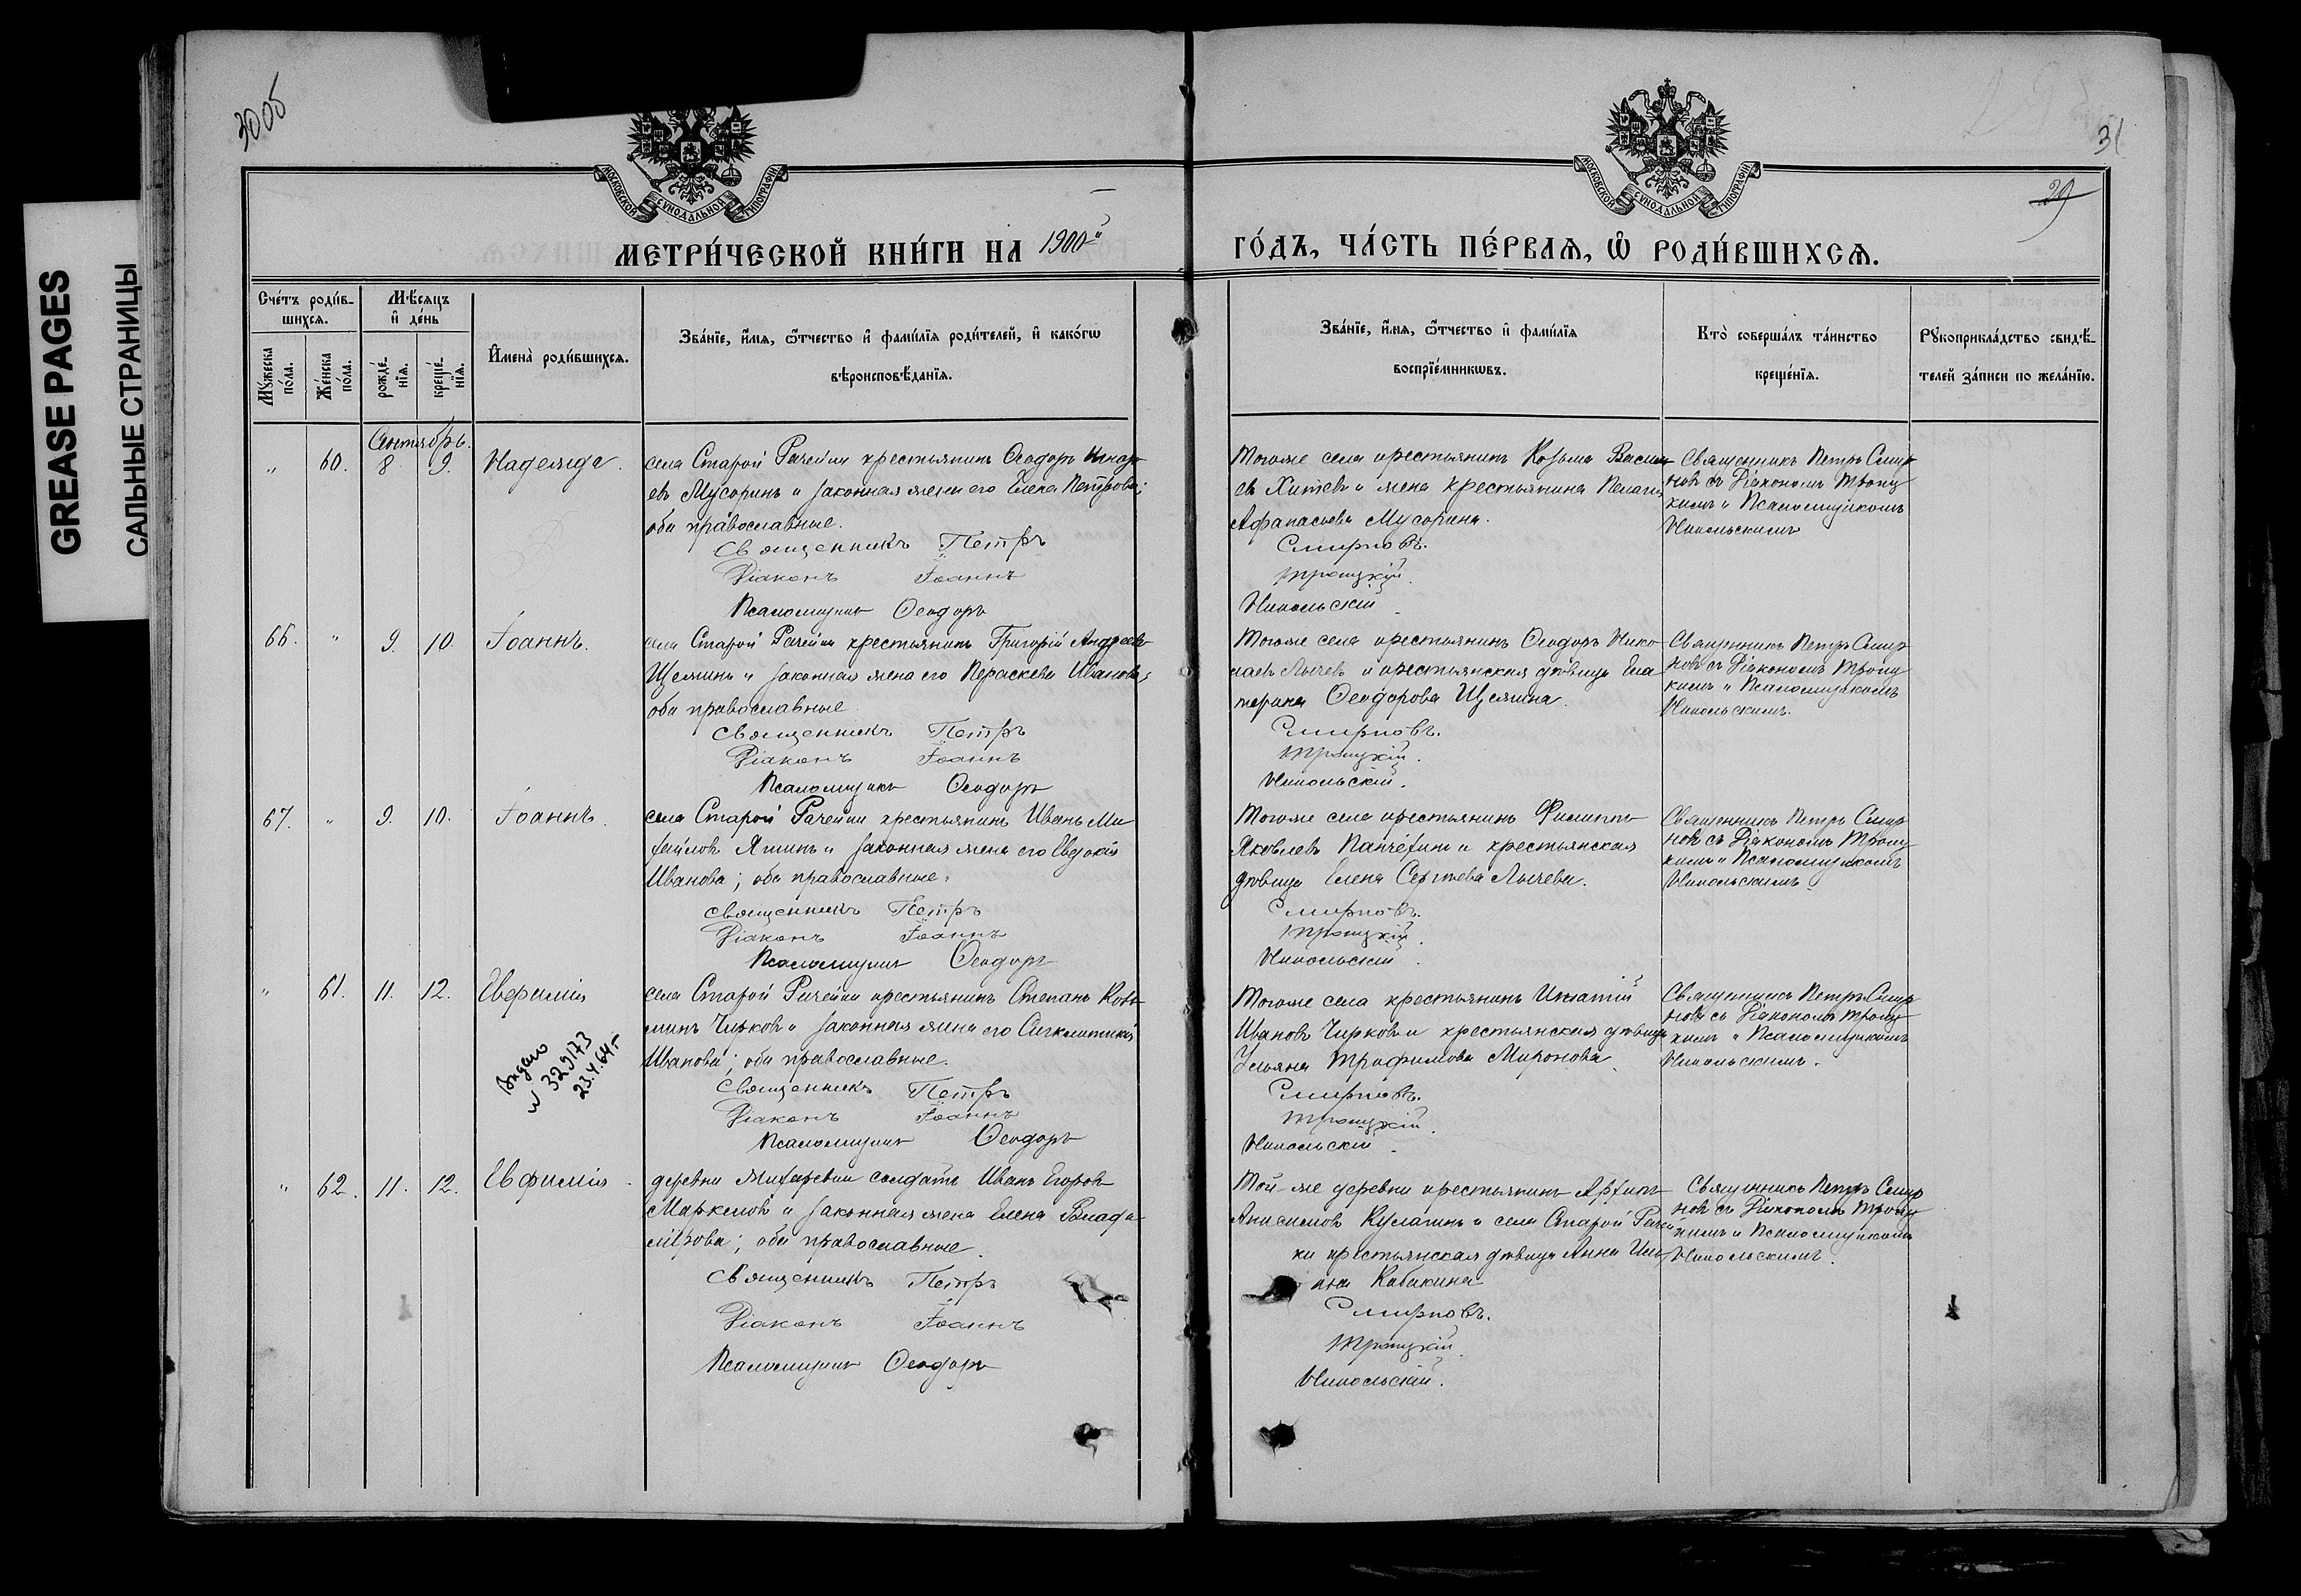 GREASE PAGES
САЛЬНЫЕ СТРАНИЦЫ
30об
31
29
МОСКОВСКОЙ СУНОДАЛЬНОЙ ТИПОГРАФІИ
МОСКОВСКОЙ СУНОДАЛЬНОЙ ТИПОГРАФІИ
МЕТРИ́ЧЕСКОЙ КНИ́ГИ НА 1900й
ГО́ДЪ, ЧА́СТЬ ПЕ́РВАѦ, Ѡ҆ РОДИ́ВШИХСѦ.
Сче́тъ роди́в-
шихсѧ.
Мѣ́сѧцъ
и҆ де́нь
Мꙋ́жеска
по́ла.
Же́нска
по́ла.
рожде́-
нїѧ.
креще́-
нїѧ.
И҆мена̀ роди́вшихсѧ.
Зва́нїе, и҆́мѧ, ѻ҆́тчество и҆ фами́лїѧ роди́телей, и҆ како́гѡ
вѣроисповѣ́данїѧ.
Зва́нїе, и҆́мѧ, ѻ҆́тчество и҆ фами́лїѧ
воспрїе́мникѡвъ.
Кто̀ соверша́лъ та́инство
креще́нїѧ.
Рꙋкоприкла́дство свидѣ́-
телей за́писи по жела́нїю.
Сентябрь.
„ 60. 8 9. Надежда.
села Старой Рачейки крестьянинъ Ѳеодоръ
евъ Мусоринъ и законная жена его Елена Петрова;
оба православные.
Священникъ Петръ
Діаконъ Іоаннъ
Псаломщикъ Ѳеодоръ
Тогоже села крестьянинъ Козьма Василь
евъ Хитевъ и жена крестьянина Пелагія
Афанасьева Мусорина.
Смирновъ.
Троицкій.
Никольскій
Священникъ Петръ Смир
новъ съ Діакономъ Троиц
кимъ и Псаломщикомъ
Никольскимъ
66. „ 9. 10. Іоаннъ.
села Старой Рачейки крестьянинъ Григорій Андреевъ
Щелинъ и законная жена его Параскева Иванова;
оба православные
Священникъ Петръ
Діаконъ Іоаннъ
Псаломщикъ Ѳеодоръ
Тогоже села крестьянинъ Ѳеодоръ Нико
лаевъ Лычевъ и крестьянская дѣвица Ека
терина Ѳеодорова Щелина.
Смирновъ.
Троицкій.
Никольскій.
Священникъ Петръ Смир
новъ съ Діакономъ Троиц
кимъ и Псаломщикомъ
Никольскимъ.
67. „ 9. 10. Іоаннъ.
села Старой Рачейки крестьянинъ Иванъ Ми
хайловъ Яшинъ и законная жена его Евдокія
Иванова; оба православные.
Священникъ Петръ
Діаконъ Іоаннъ
Псаломщикъ Ѳеодоръ
Тогоже села крестьянинъ Филиппъ
Яковлевъ и крестьянская
дѣвица Елена Сергѣева Лычева.
Смирновъ.
Троицкій.
Никольскій.
Священникъ Петръ Смир
новъ съ Діакономъ Троиц
кимъ и Псаломщикомъ
Никольскимъ
„ 61. 11. 12. Евфимія
Выдано
329173
села Старой Рачейки крестьянинъ Степанъ Козь
минъ Чирковъ и законная жена его Сигклитикія
Иванова; оба православные.
Священникъ Петръ
Діаконъ Іоаннъ
Псаломщикъ Ѳеодоръ
Тогоже села крестьянинъ Игнатій
Ивановъ Чирковъ и крестьянская дѣвица
Ульяна Трофимова Миронова.
Смирновъ.
Троицкій.
Никольскій.
Священникъ Петръ Смир
новъ съ Діакономъ Троиц
кимъ и Псаломщикомъ
Никольскимъ.
„ 62. 11. 12. Евфимія.
деревни солдатъ Иванъ Егоровъ
Маркеловъ и законная жена Елена Влади
мірова; оба православные.
Священникъ Петръ
Діаконъ Іоаннъ
Псаломщикъ Ѳеодоръ
Той-же деревни крестьянинъ
Анисимовъ и села Старой Рачей
ки крестьянская дѣвица Анна
Кабакина
Смирновъ.
Троицкій.
Никольскій.
Священникъ Петръ Смир
новъ съ Діакономъ Троиц
кимъ и Псаломщикомъ
Никольскимъ.